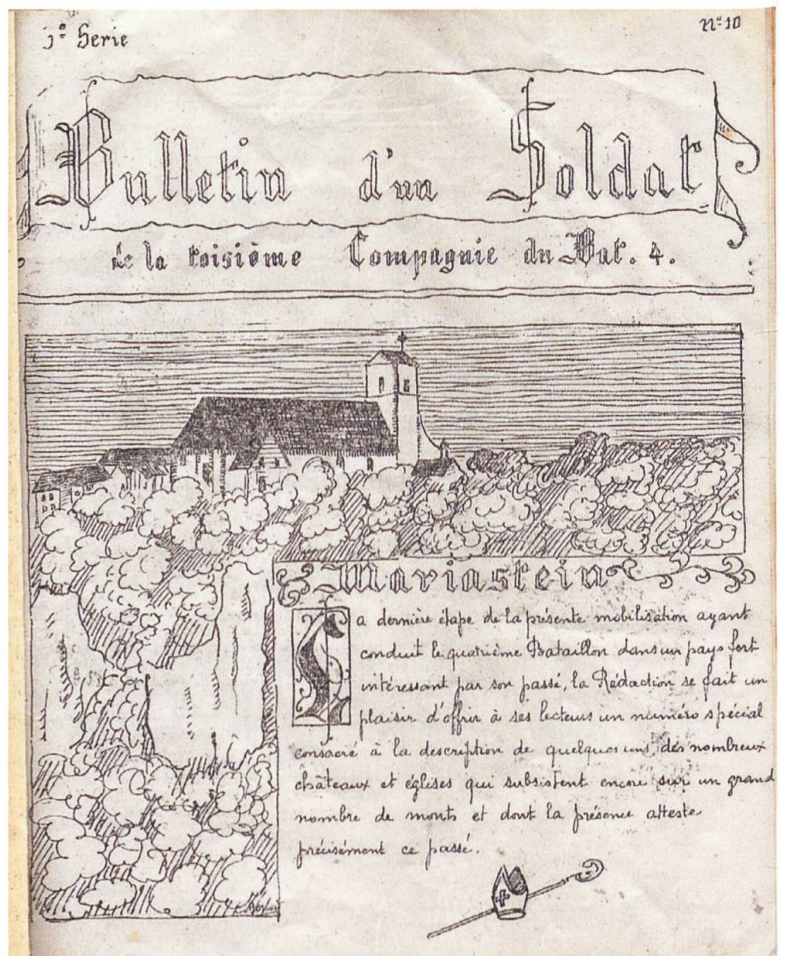 1º Serie
Nº 10
Bulletin d'un Soldat
de la toisième Compagnie du Bat. 4.
Mariastein
La dernière étape de la présente mobilisation ayant
conduit le quatrième Bataillon dans un pays fort
intéressant par son passé, la Rédaction se fait un
plaisir d'offrir à ses lecteurs un numéro spécial
consacré à la description de quelques uns des nombreux
châteaux et églises qui subsistent encore sur un grand
nombre de monts et dont la présence atteste
précisément ce passé.